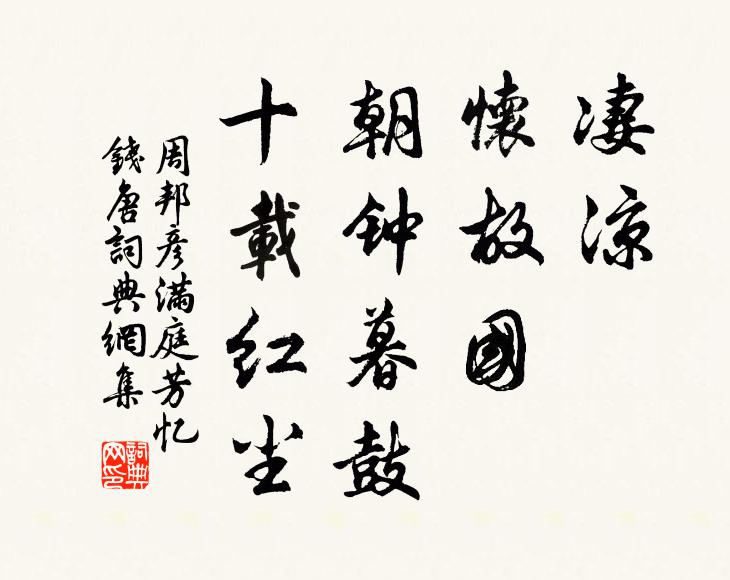 凄涼
懷故國
朝钟暮鼓
十載红尘
周邦彦满庭芳忆
錢唐詞典網集
詞典网印